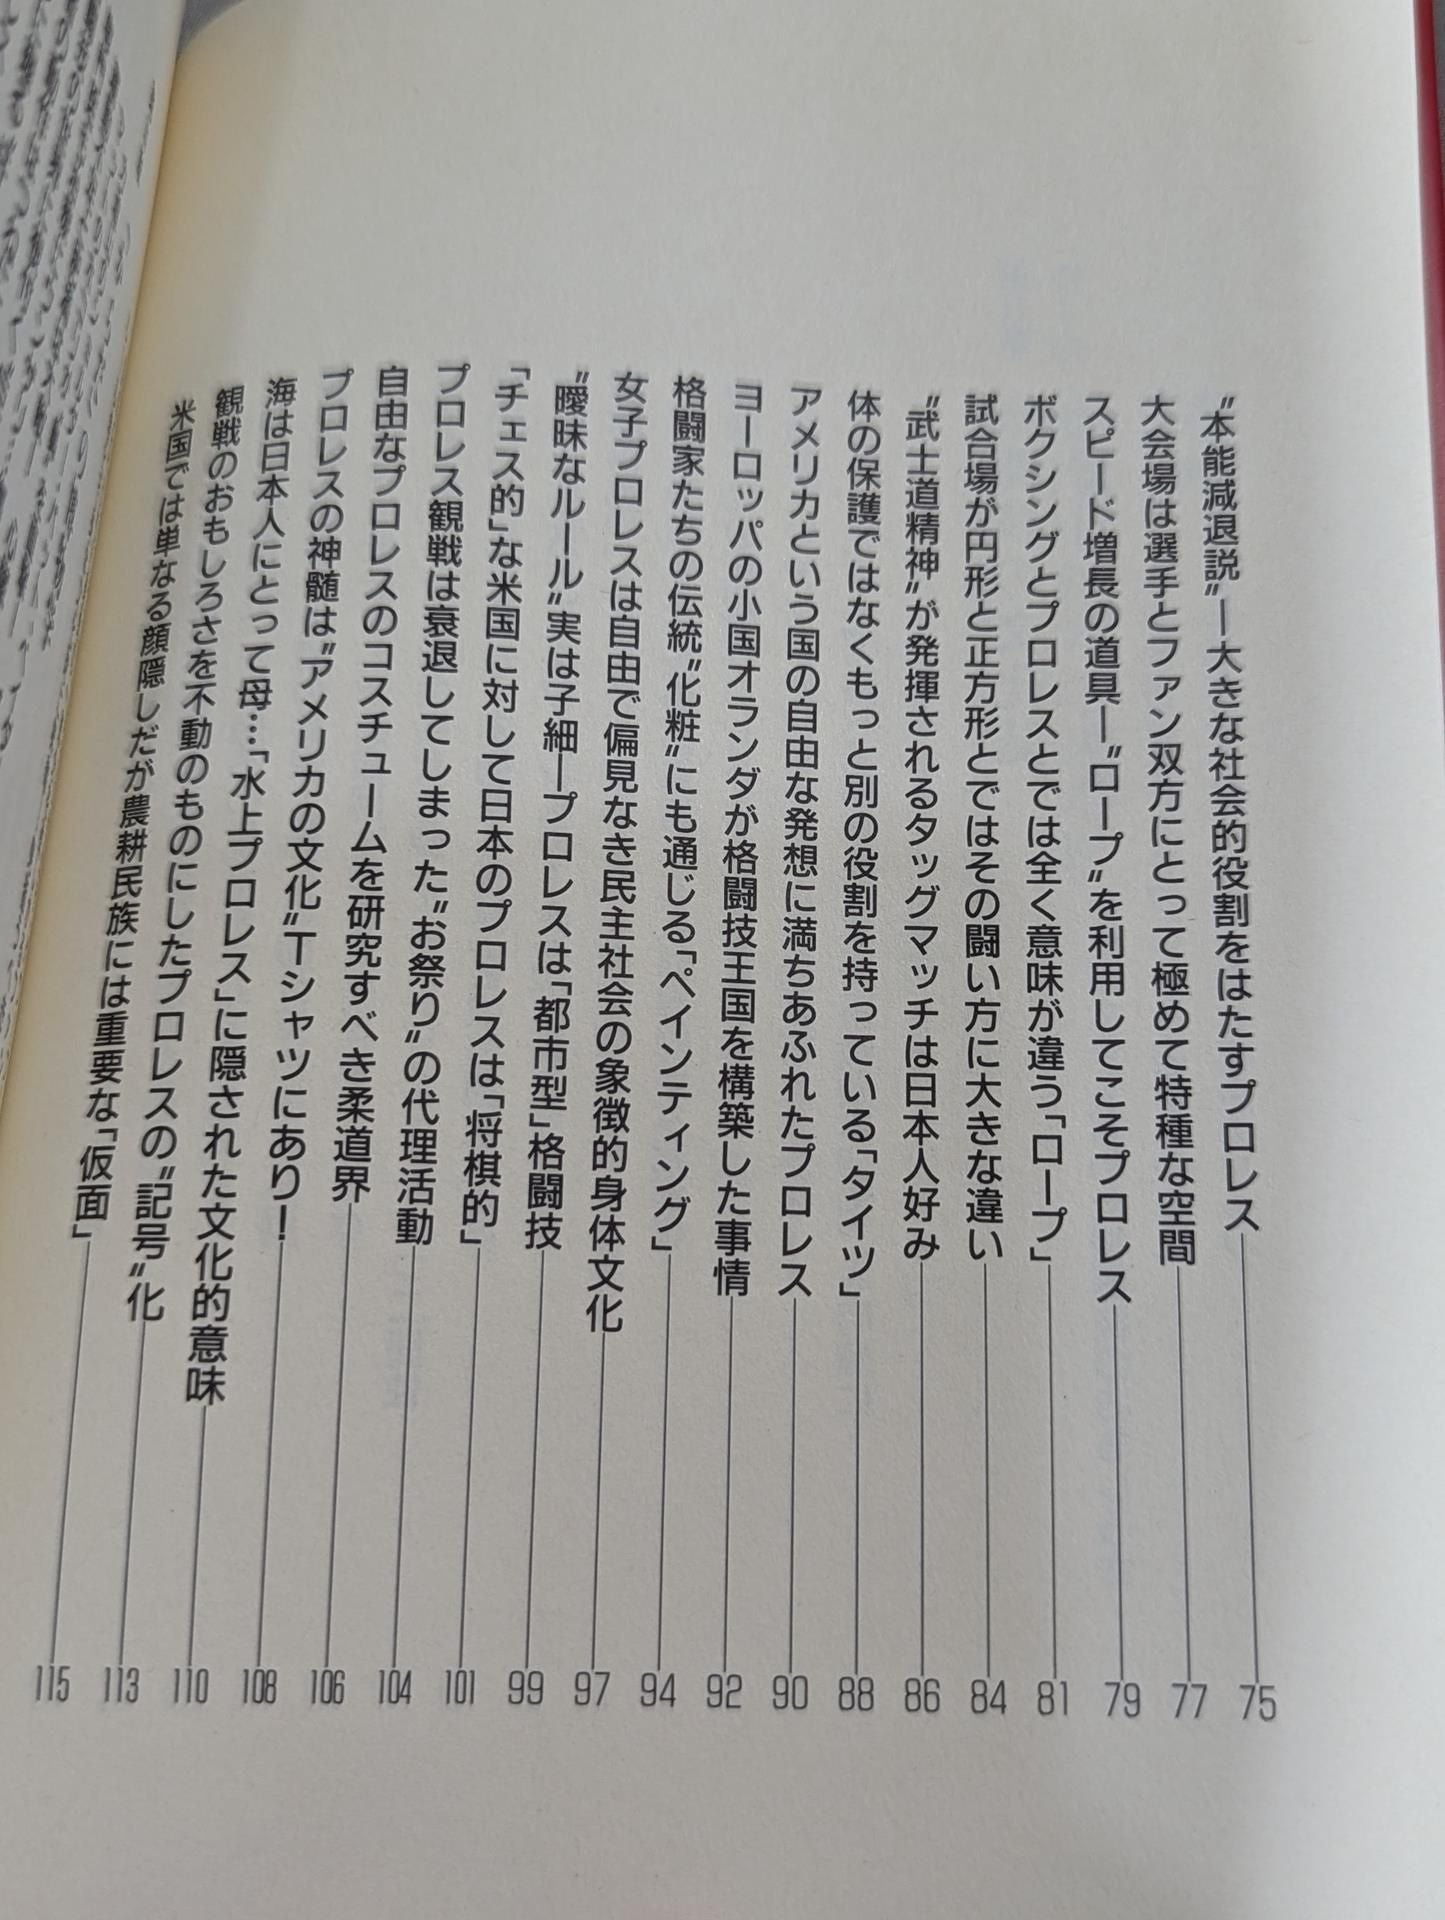 〝本能減退説〟―大きな社会的役割をはたすプロレス 75
大会場は選手とファン双方にとって極めて特種な空間 77
スピード増長の道具―〝ロープ〟を利用してこそプロレス 79
ボクシングとプロレスとでは全く意味が違う「ロープ」 81
試合場が円形と正方形とではその闘い方に大きな違い 84
〝武士道精神〟が発揮されるタッグマッチは日本人好み 86
体の保護ではなくもっと別の役割を持っている「タイツ」 88
アメリカという国の自由な発想に満ちあふれたプロレス 90
ヨーロッパの小国オランダが格闘技王国を構築した事情 92
格闘家たちの伝統〝化粧〟にも通じる「ペインティング」 94
女子プロレスは自由で偏見なき民主社会の象徴的身体文化 97
〝曖昧なルール〟実は子細―プロレスは「都市型」格闘技 99
「チェス的」な米国に対して日本のプロレスは「将棋的」 101
プロレス観戦は衰退してしまった〝お祭り〟の代理活動 104
自由なプロレスのコスチュームを研究すべき柔道界 106
プロレスの神髄は〝アメリカの文化〟Tシャツにあり! 108
海は日本人にとって母…「水上プロレス」に隠された文化的意味 110
観戦のおもしろさを不動のものにしたプロレスの〝記号〟化 113
米国では単なる顔隠しだが農耕民族には重要な「仮面」 115